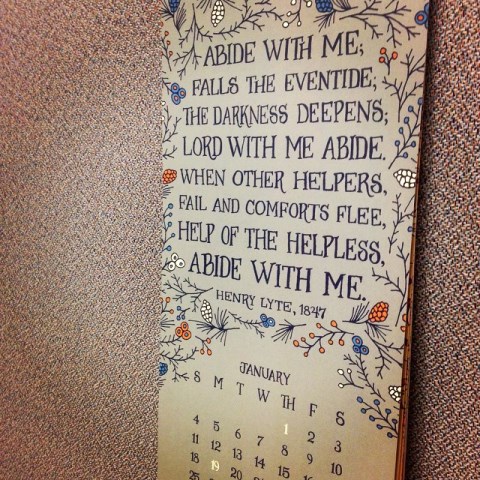 ABIDE WITH ME;
FALLS THE EVENTIDE;
THE DARKNESS DEEPENS;
LORD WITH ME ABIDE.
WHEN OTHER HELPERS,
FAIL AND COMFORTS FLEE,
HELP OF THE HELPLESS,
ABIDE WITH ME.
HENRY LYTE, 1847
JANUARY
S M T W TH F S
1 2 3
4 5 6 7 8 9 10
11 12 13 14 15 16
18 19 20 21